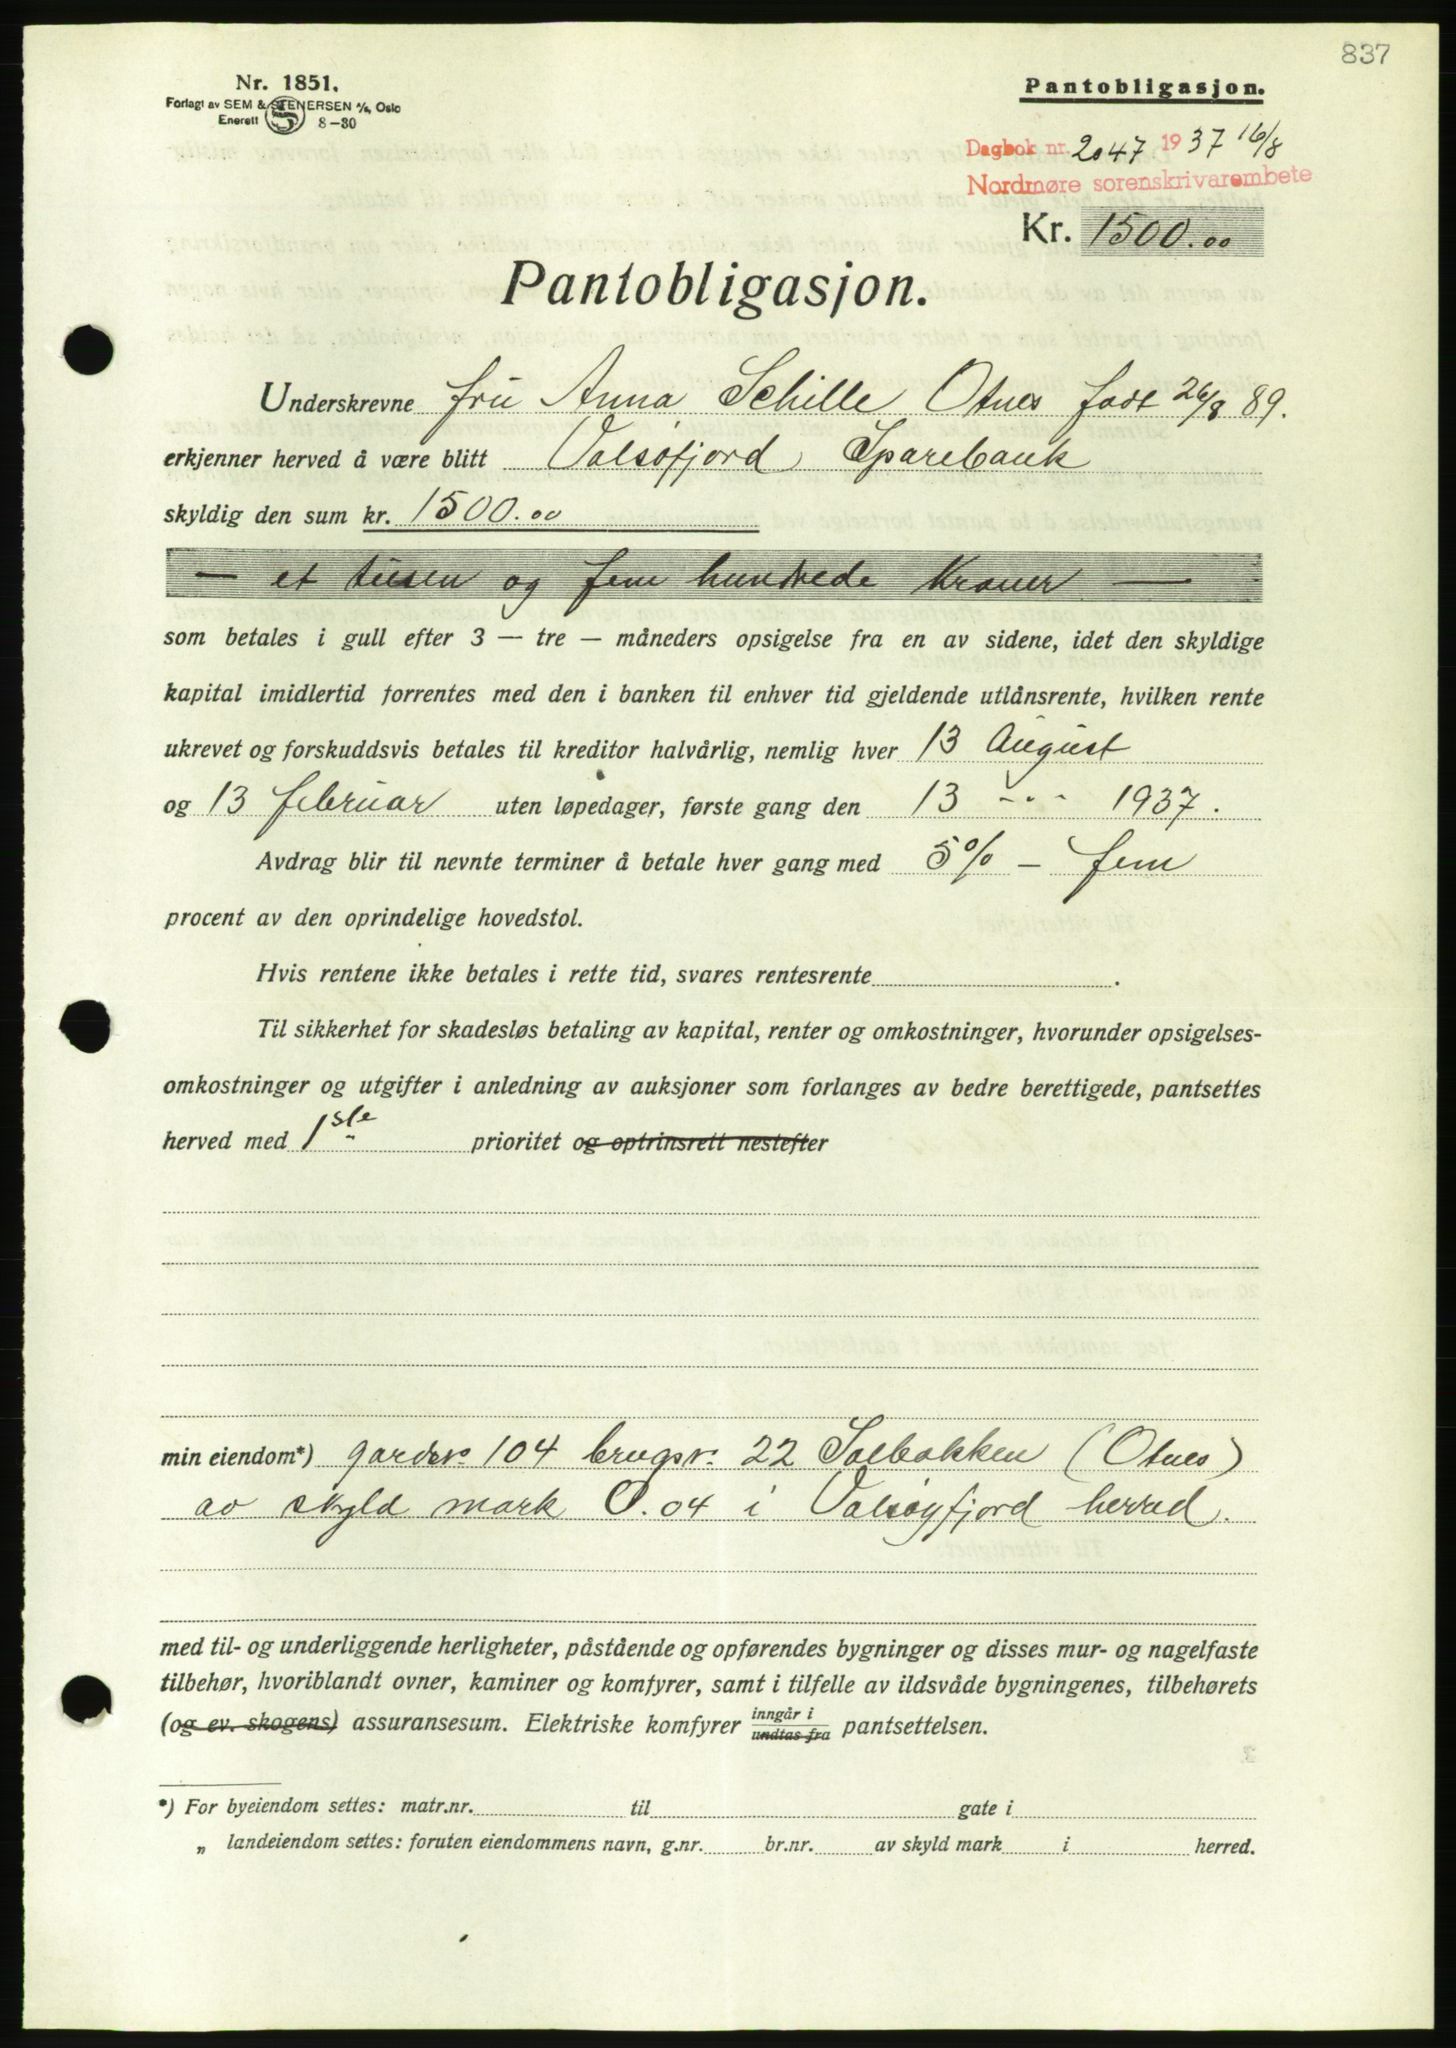 837
Nr. 1851.
Forlagt av SEM & STENERSEN A/s, Oslo
Enerett 8-30
Pantobligasjon.
Dagbok nr. 2047 1937 16/8
Nordmøre sorenskrivarembete
Kr. 1500.00
Pantobligasjon.
Underskrevne fru Anna Schille Otnes født 26/8 89.
erkjenner herved å være blitt Valsøfjord Sparebank
skyldig den sum kr. 1500.00
— et tusen og fem hundrede Kroner —
som betales i gull efter 3 — tre — måneders opsigelse fra en av sidene, idet den skyldige
kapital imidlertid forrentes med den i banken til enhver tid gjeldende utlånsrente, hvilken rente
ukrevet og forskuddsvis betales til kreditor halvårlig, nemlig hver 13 August
og 13 februar uten løpedager, første gang den 13 - - - 1937.
Avdrag blir til nevnte terminer å betale hver gang med 5% — fem
procent av den oprindelige hovedstol.
Hvis rentene ikke betales i rette tid, svares rentesrente .
Til sikkerhet for skadesløs betaling av kapital, renter og omkostninger, hvorunder opsigelses-
omkostninger og utgifter i anledning av auksjoner som forlanges av bedre berettigede, pantsettes
herved med 1ste prioritet og optrinsrett nestefter
min eiendom*) gardsnr. 104 brugsnr. 22 Solbakken (Otnes)
av skyld mark 0.04 i Valsøyfjord herred.
med til- og underliggende herligheter, påstående og opførendes bygninger og disses mur- og nagelfaste
tilbehør, hvoriblandt ovner, kaminer og komfyrer, samt i tilfelle av ildsvåde bygningenes, tilbehørets
(og ev. skogens) assuransesum. Elektriske komfyrer inngår i undtas fra pantsettelsen.
*) For byeiendom settes: matr.nr. til gate i
„ landeiendom settes: foruten eiendommens navn, g.nr. br.nr. av skyld mark i herred.